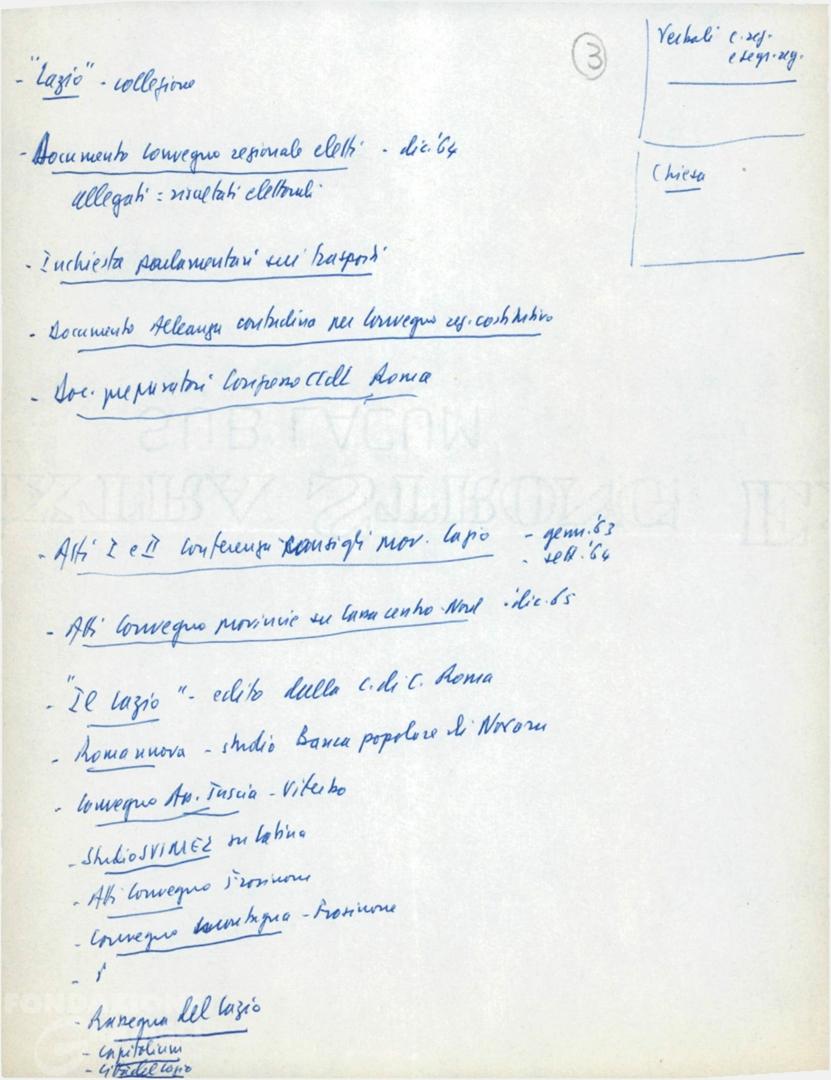 3
Verbali c. reg.
e segr. reg.
Chiesa
- "Lazio" - collezione
- Documento Convegno regionale eletti - dic. '64
allegati = risultati elettorali
- Inchiesta parlamentari sui trasporti
- Documento Alleanza contadina per Convegno reg. costitutivo
- Doc. preparatori Congresso CCdL Roma
SUB LACUM
EXTRA STRONG E
- Atti I e II Conferenza Consigli prov. Lazio - genn. '63
- sett. '64
- Atti Convegno provincie su centro-Nord - dic. 65
- "Il Lazio" - edito dalla C. di C. Roma
- Roma nuova - studio Banca popolare di Novara
- Convegno Tuscia - Viterbo
- Studio SVIMEZ su Latina
- Atti Convegno Frosinone
- Convegno montagna - Frosinone
-
- Rassegna del Lazio
- Capitolium
FONDAZION